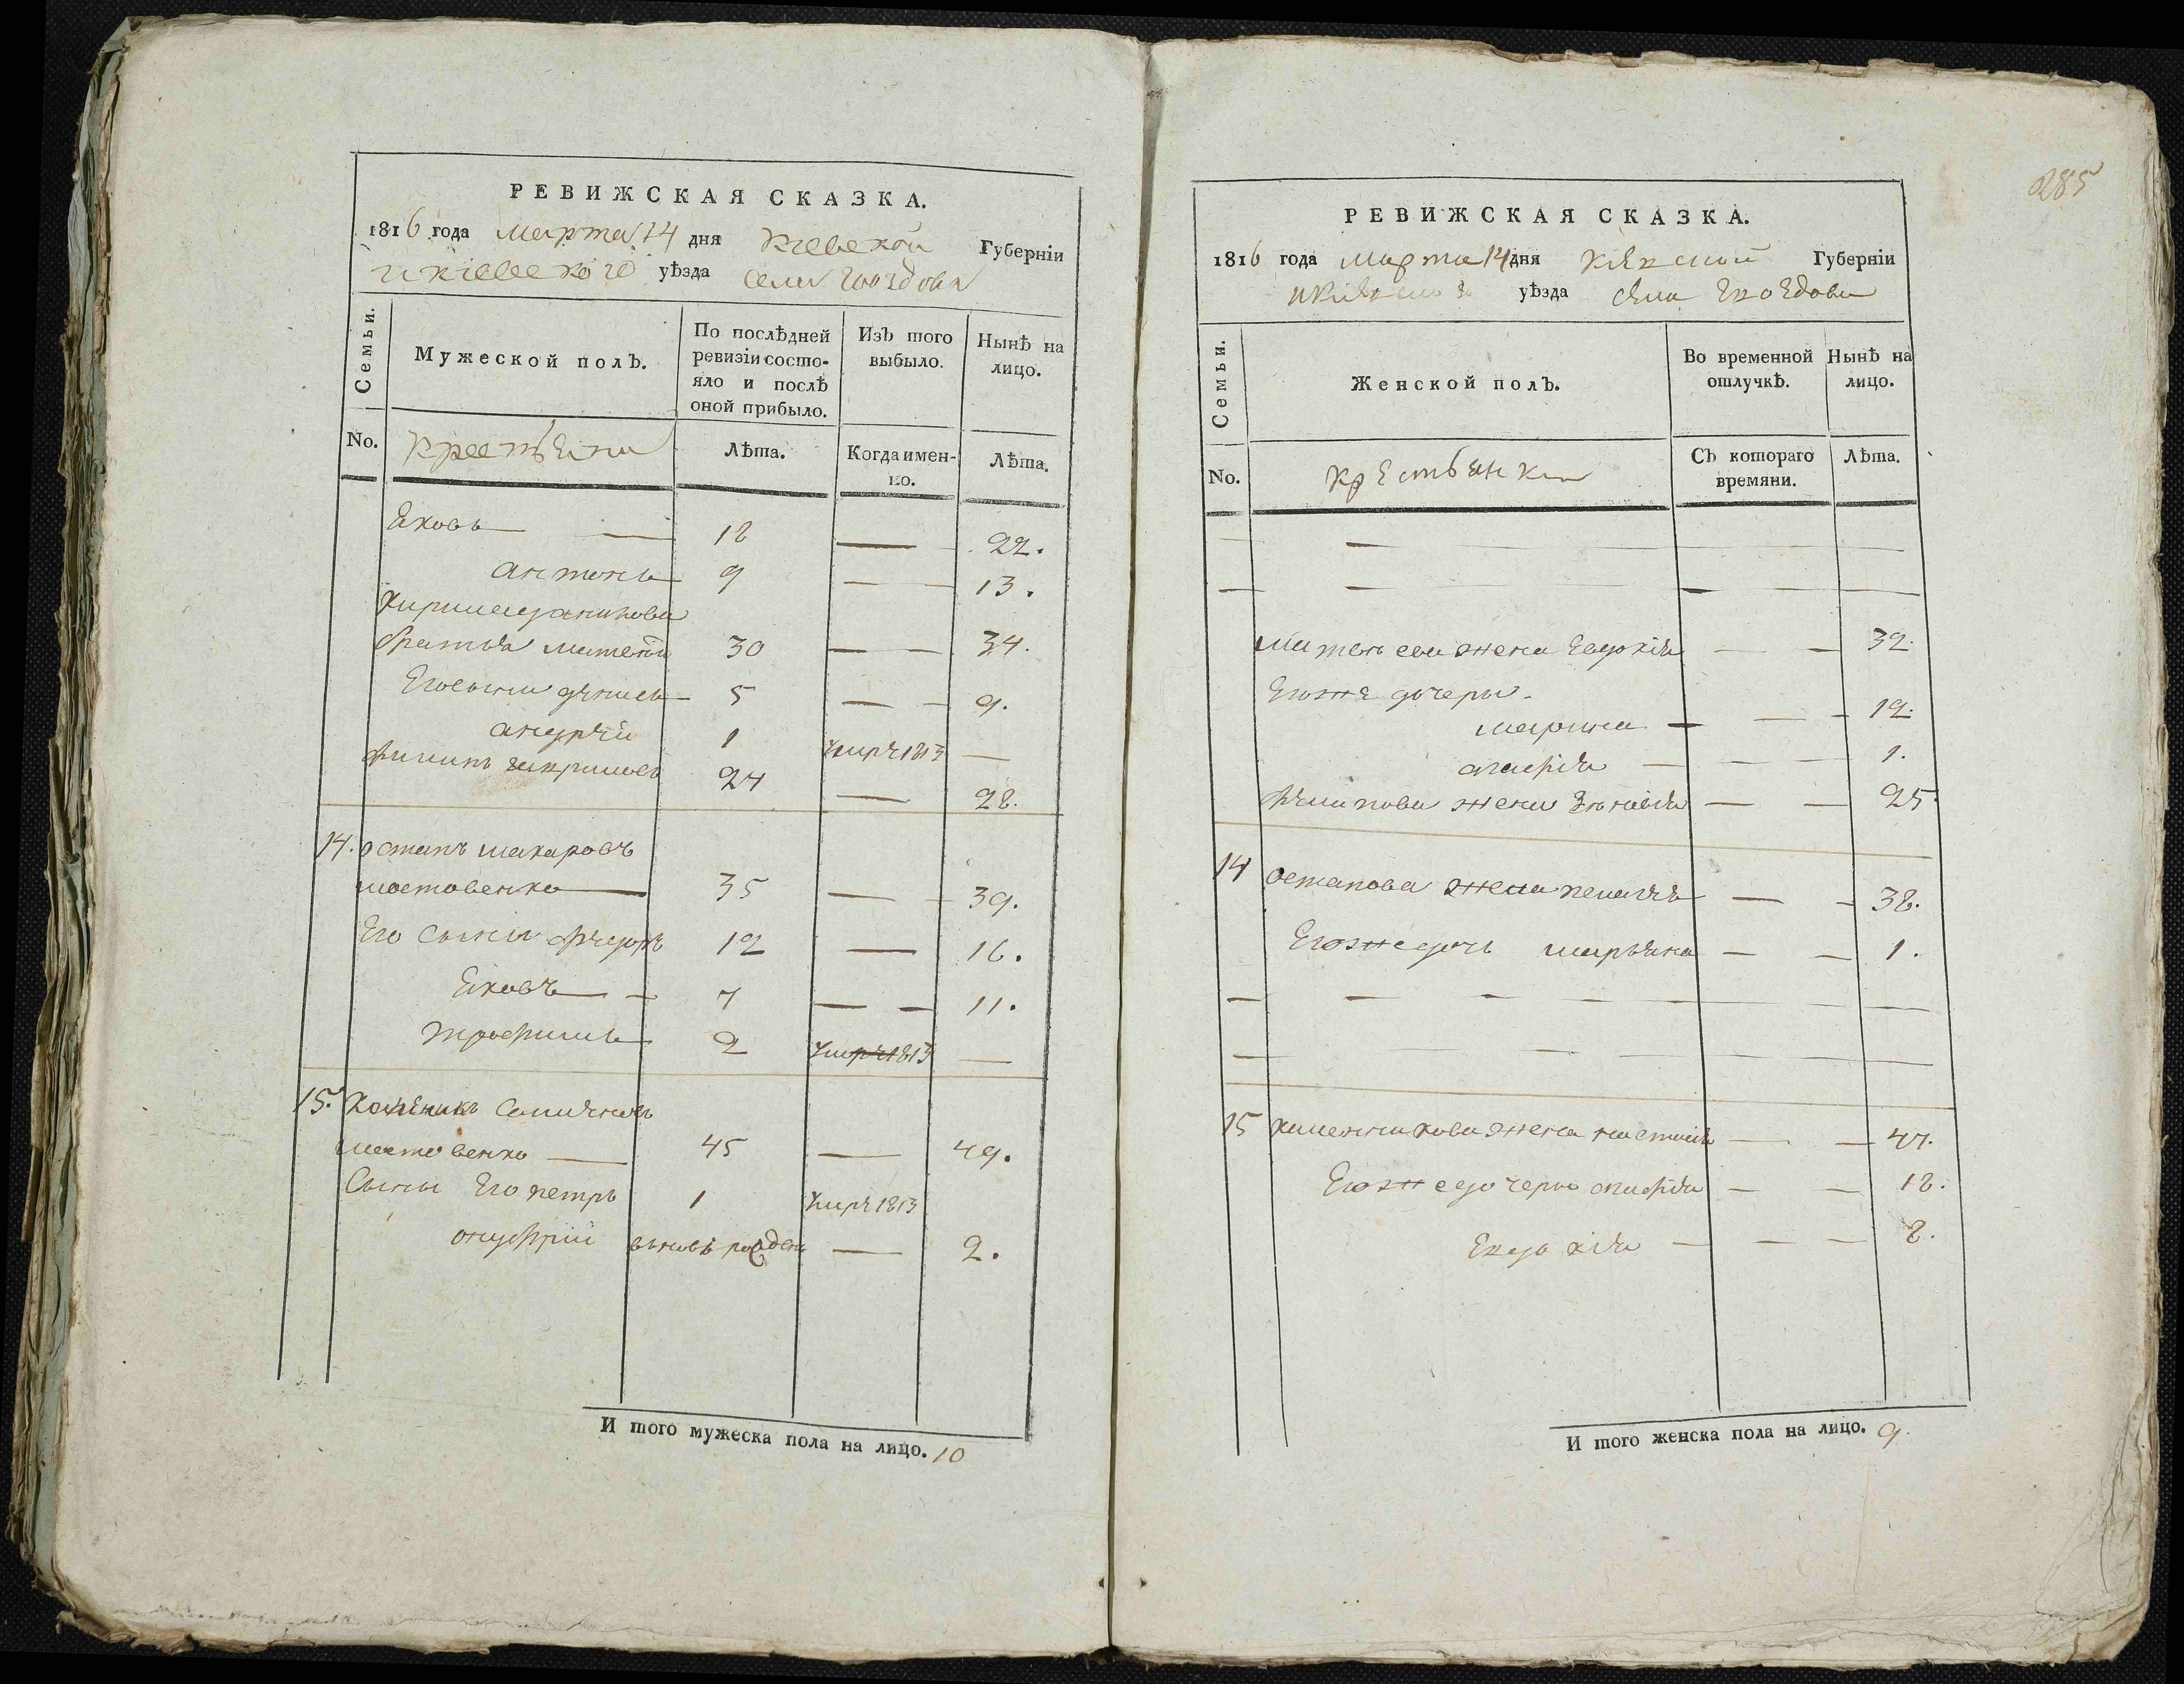 285
РЕВИЖСКАЯ СКАЗКА.
1816 года марта 14 дня Киевской Губерніи
и кіевского уѣзда села Гвоздова
Семьи.
Мужеской полъ.
По послѣдней
ревизіи состо-
яло и послѣ
оной прибыло.
Изъ того
выбыло.
Нынѣ на
лицо.
No.
Крестьяни
Лѣта.
Когда имен-
но.
Лѣта.
Яковъ — 18 — 22.
антонъ 9 — 13.
братья матвей 30 — 34.
Его сыни денисъ 5 — 9.
андрѣй 1 умре 1813 —
филипъ 24 — 28.
14. остапъ макаровъ
мостовенко 35 — 39.
Его сыны федоръ 12 — 16.
Яковъ 7 — 11.
трофимъ 2 умре 1813 —
15.
мостовенко 45 — 49.
Сыны Его петръ 1 умре 1813
онуфрій вновь рожденъ — 2.
И того мужеска пола на лицо. 10
РЕВИЖСКАЯ СКАЗКА.
1816 года марта 14 дня Губерніи
уѣзда села Гвоздова
Семьи.
Женской полъ.
Во временной
отлучкѣ.
Нынѣ на
лицо.
No.
крестьянки
Съ котораго
времяни.
Лѣта.
матвеева жена Евдокія — — 32.
Егоже дочеры
марина — — 12.
агафія — — 1.
филипова жена — — 25
14 остапова жена пелагѣя — — 38.
Егоже дочь марьяна — — 1.
15 жена настасія — — 47.
Егоже дочеры агафія — — 18.
Евдокія — — 8.
И того женска пола на лицо. 9.